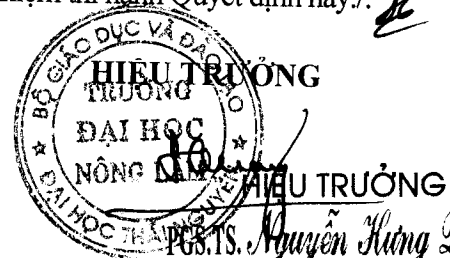 Quyết định này./.
HIỆU TRƯỞNG
BỘ GIÁO DỤC VÀ ĐÀO TẠO
TRƯỜNG
ĐẠI HỌC
NÔNG LÂM
ĐẠI HỌC THÁI NGUYÊN
HIỆU TRƯỞNG
PGS.TS. Nguyễn Hưng